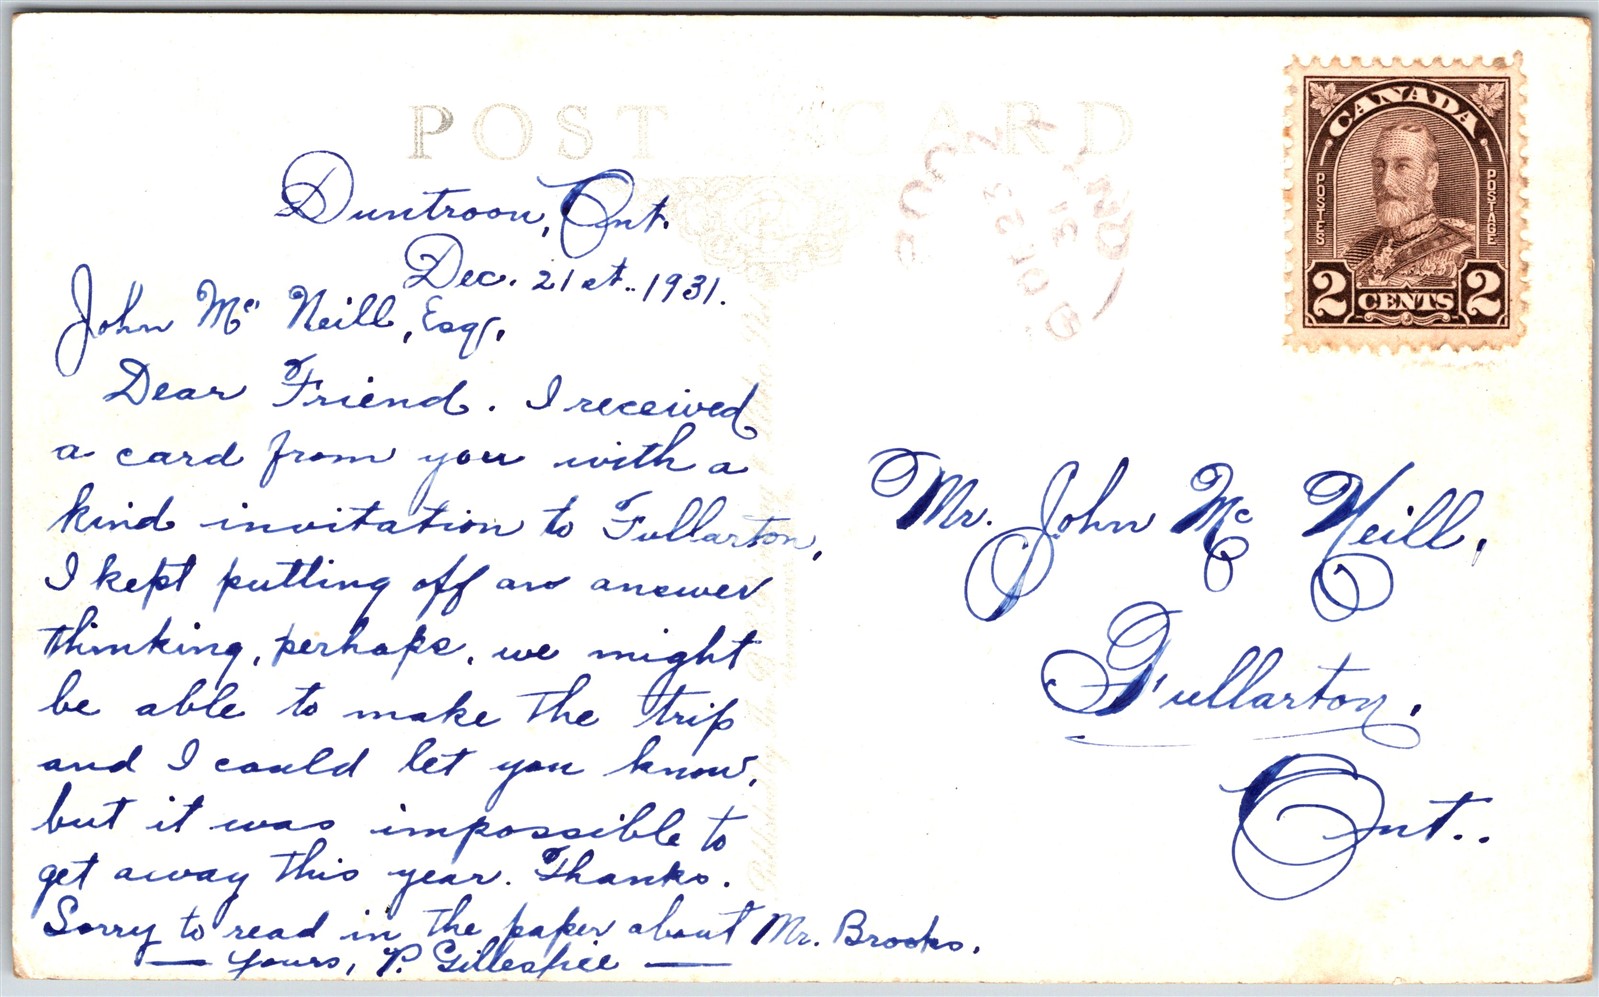 POST CARD
CANADA
POSTES
POSTAGE
2 CENTS 2
DE 23
31
Duntroon, Ont.
Dec. 21st.. 1931.
John Mc Neill, Esq.,
Dear Friend. I received
a card from you with a
kind invitation to Fullarton,
I kept putting off an answer
thinking, perhaps, we might
be able to make the trip
and I could let you know,
but it was impossible to
get away this year. Thanks.
Sorry to read in the paper about Mr. Brooks.
— Yours, P. Gillespie —
Mr. John Mc Neill,
Fullarton,
Ont..